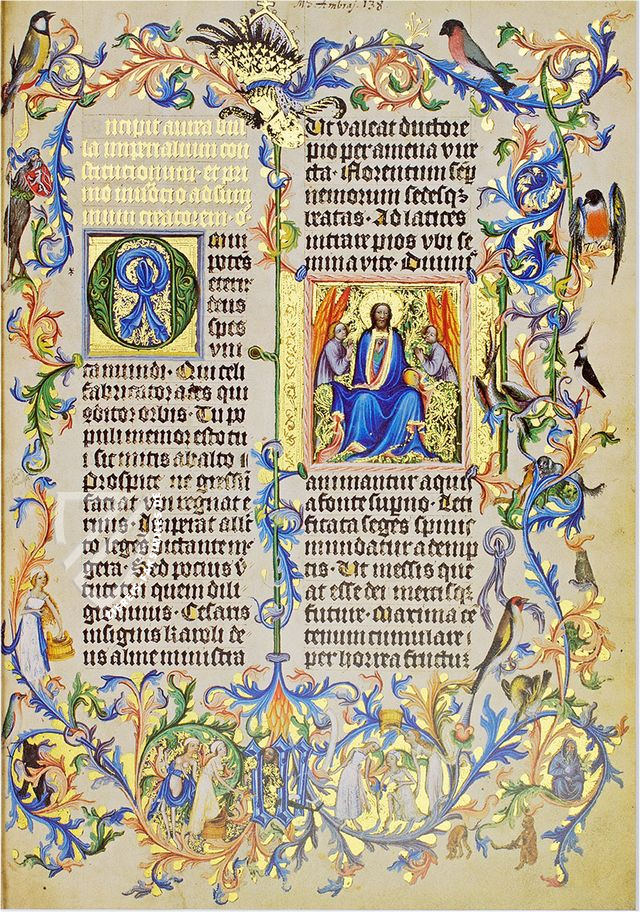 Ms Ambras. 138
ncipit aurea bul
la imperialium con
stitucionum · et pri
mo invocio ad sum
mum creatorem ·
Omni
potes
eterne
deus
spes
vni
ca mundi · Qui celi
fabricator ades qui
ditor orbis · Tu po
puli memor esto tu
i sic mitis ab alto
Prospice ne gressū
faciat vbi regnat e
rinis · Imperat alle
to leges dictante me
gera · Sed pocius v
tute tui quem dili
gis huius · Cesaris
insignis karoli de
us alme ministra
Ut valeat ductore
pio per amena vire
ta · florentum semp
nemorum sedesqꝫ
beatas · Ad latices
intrare pios vbi se
mina vite · Diuinis
animantur aquis
a fonte superno · Leti
ficata seges spinis
mundatur ademp
tis · Ut messis que
at esse dei mercisqꝫ
future · Maxima ce
tenum cumulare
per horrea fructum